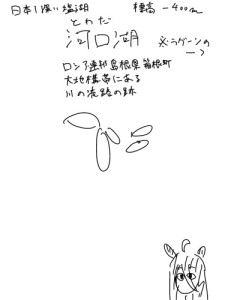 日本1深い塩湖 標高-400m
とわだ
河口湖 ※ラグーンの一つ
ロシア連邦島根県箱根町
大地構帯にある
川の流路の跡